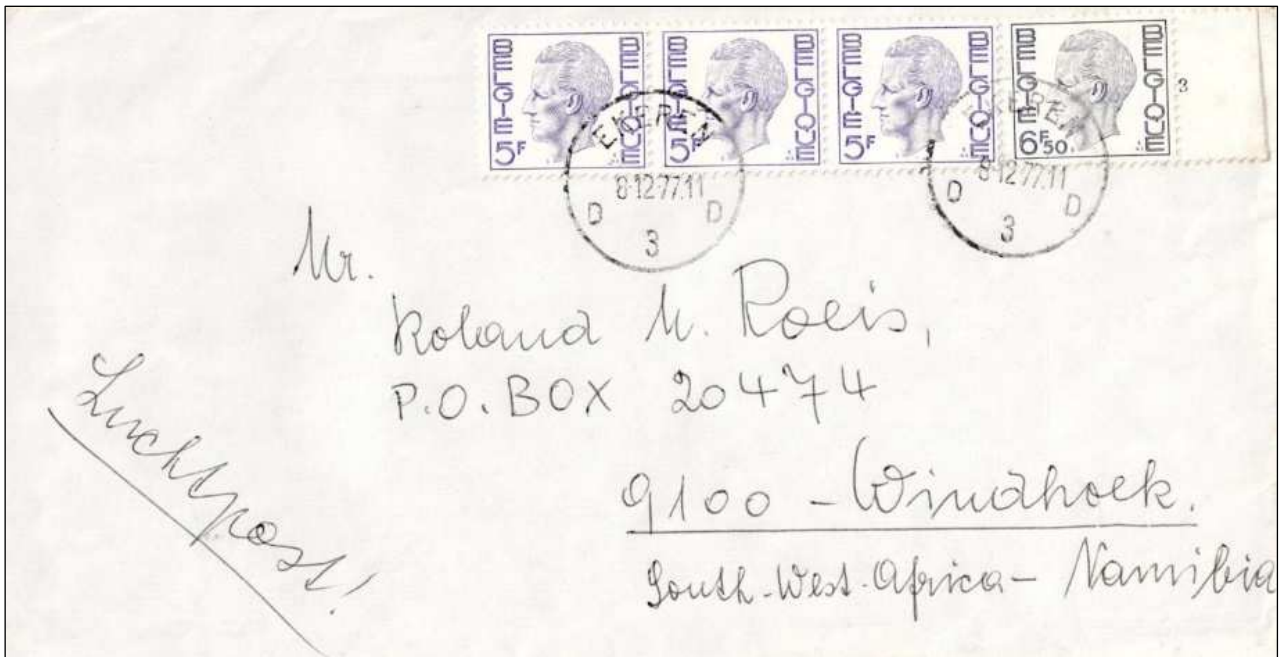 BELGIE 5F BELGIQUE
BELGIE 5F BELGIQUE
BELGIE 5F BELGIQUE
BELGIE 6F50 BELGIQUE
3
EKEREN
8-12-77.11
D 3 D
EKEREN
8-12-77.11
D 3 D
Mr.
Roland M. Roeis,
P.O. BOX 20474
9100 - Windhoek.
South-West-Africa - Namibia
Luchtpost!